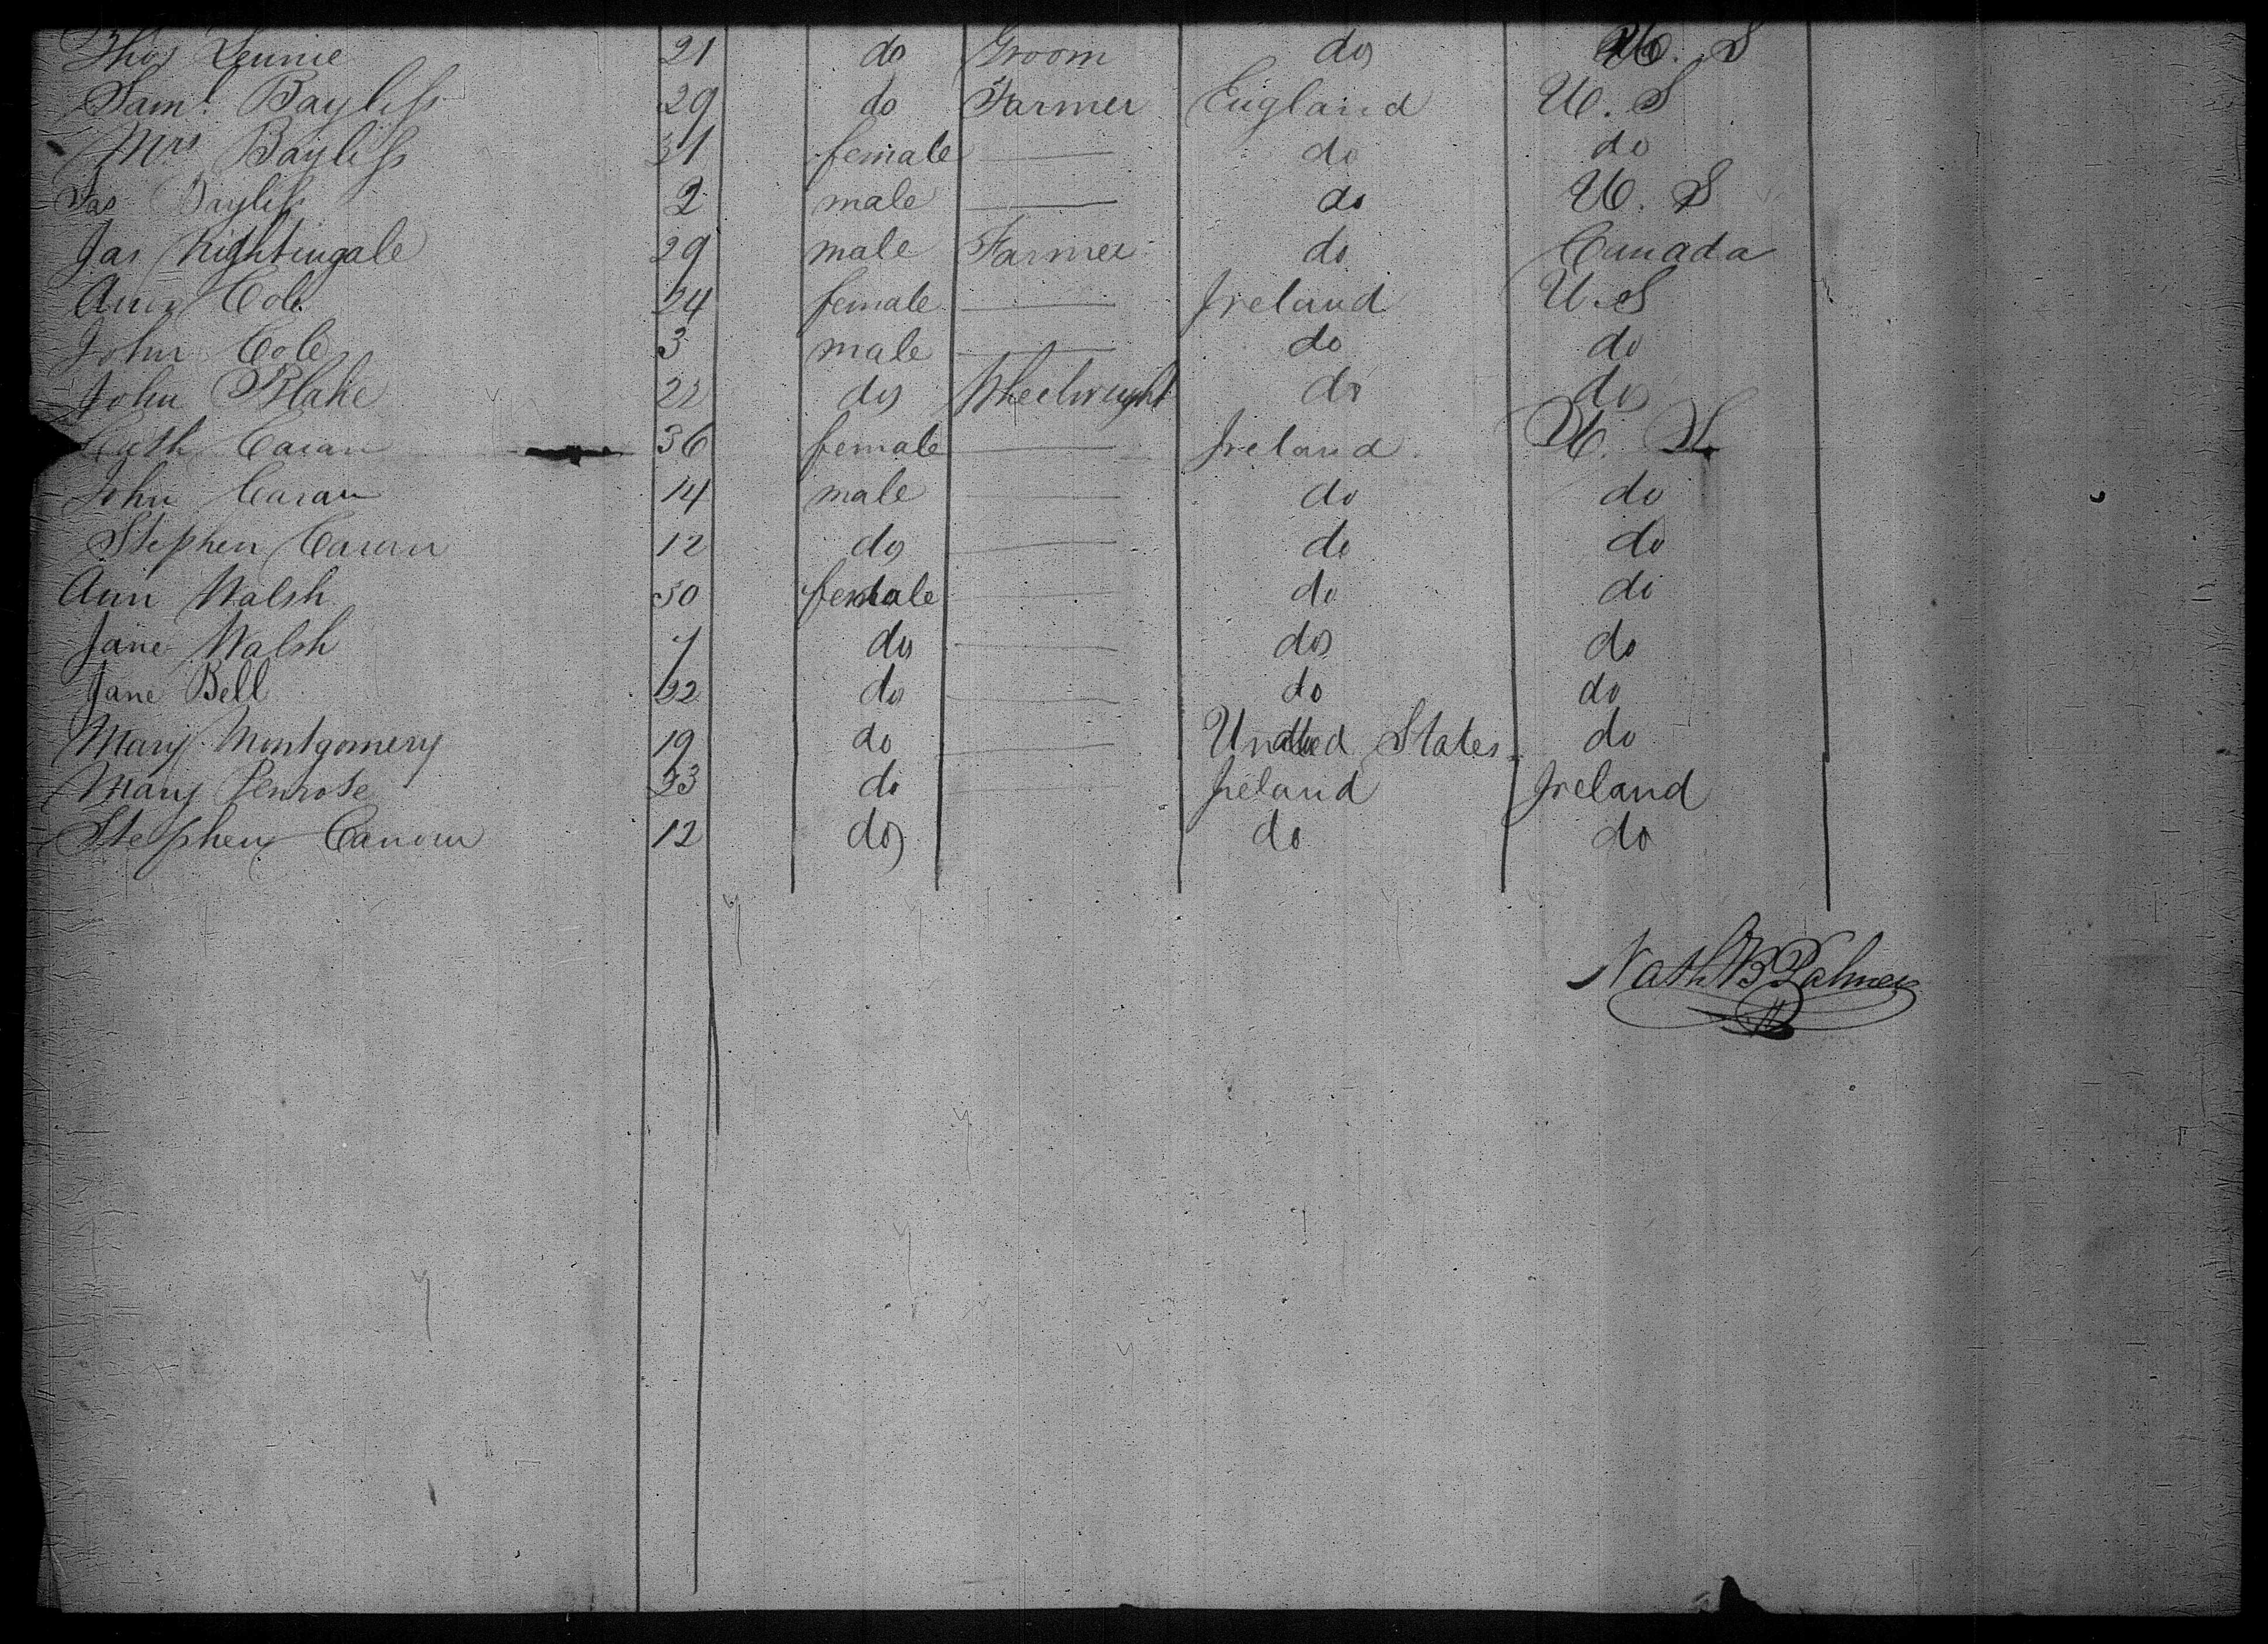 Thos Lennie 21 do Groom do U. S
Saml. Bayliss 29 do Farmer England U. S
Mrs Bayliss 31 female do do
Jas Bayliss 2 male do U. S
Jas Nightingale 29 male Farmer do Canada
Ann Cole 24 female Ireland U. S
John Cole 3 male do do
John Blake 22 do Wheelwright do do
Cath Caran 36 female Ireland U. S.
John Caran 14 male do do
Stephen Caran 12 do do do
Ann Walsh 30 female do do
Jane Walsh 7 do do do
Jane Bell 22 do do do
Mary Montgomery 19 do United States do
Mary Penrose 33 do Ireland Ireland
Stephen 12 do do do
Nath B Palmer